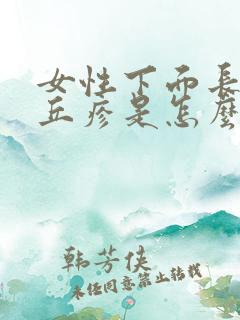 女性下面長
丘疹是怎麽
韩芳侠
未经同意禁止转载